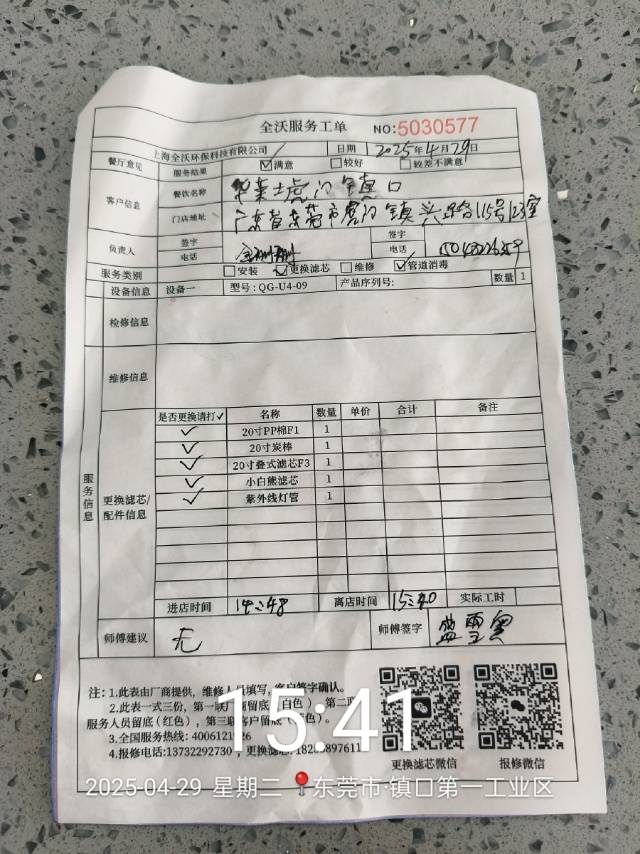 全沃服务工单 NO:5030577
上海全沃环保科技有限公司 日期 2025年4月29日
餐厅意见 服务结果 ☑满意 □较好 □较差不满意
客户信息 餐饮名称 华莱士虎门镇口
门店地址 广东省东莞市虎门镇兴 路115号123室
负责人 签字 电话 签字 电话
服务类别 □安装 ☑更换滤芯 □维修 ☑管道消毒
设备信息 设备一 型号:QG-U4-09 产品序列号: 数量 1
检修信息
维修信息
服务信息
更换滤芯/配件信息
是否更换请打✓ 名称 数量 单价 合计 备注
✓ 20寸PP棉F1 1
✓ 20寸炭棒 1
✓ 20寸叠式滤芯F3 1
✓ 小白熊滤芯 1
✓ 紫外线灯管 1
进店时间 14:48 离店时间 15:40 实际工时
师傅建议 无 师傅签字
注:1.此表由厂商提供，维修人员填写，客户签字确认。
2.此表一式三份，第一联厂商留底(白色)，第二联
服务人员留底(红色)，第三联客户留底
3.全国服务热线:
4.报修电话:13732292730，更换滤芯:
更换滤芯微信 报修微信
15:41
2025-04-29 星期二 东莞市·镇口第一工业区